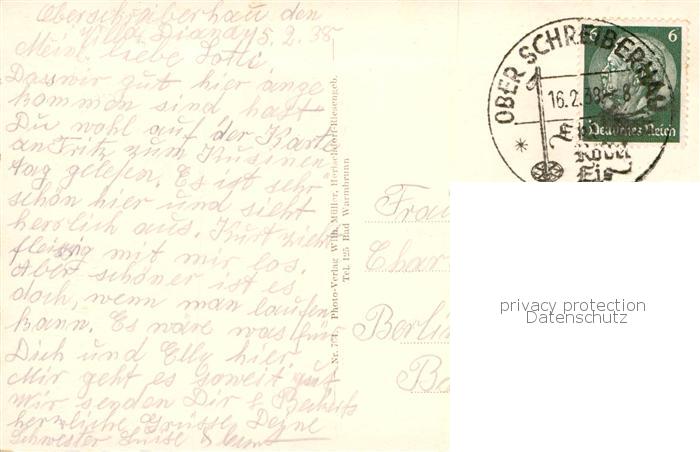 Oberschreiberhau den
Villa Diana 15.2.38
Meine liebe Lotte
Dass wir gut hier ange
kommen sind hast
Du wohl auf der Karte
an Fritz zum Kusinen
tag gelesen. Es ist sehr
schön hier und sieht
herrlich aus. Kurt zieht
fleissig mit mir los.
Aber schöner ist es
doch, wenn man laufen
kann. Es wäre was für
Dich und Elly hier.
Mir geht es soweit gut
Wir senden Dir & Beckerts
herzliche Grüsse Deine
Schwester Luise & Kurt
Nr. Photo-Verlag Wilh. Müller, Herischdorf-Riesengeb.
Tel. 125 Bad Warmbrunn
Frau
Char
Berlin
OBER SCHREIBERHAU
16.2.38
Rodel
Eis
6 6
Deutsches Reich
privacy protection
Datenschutz